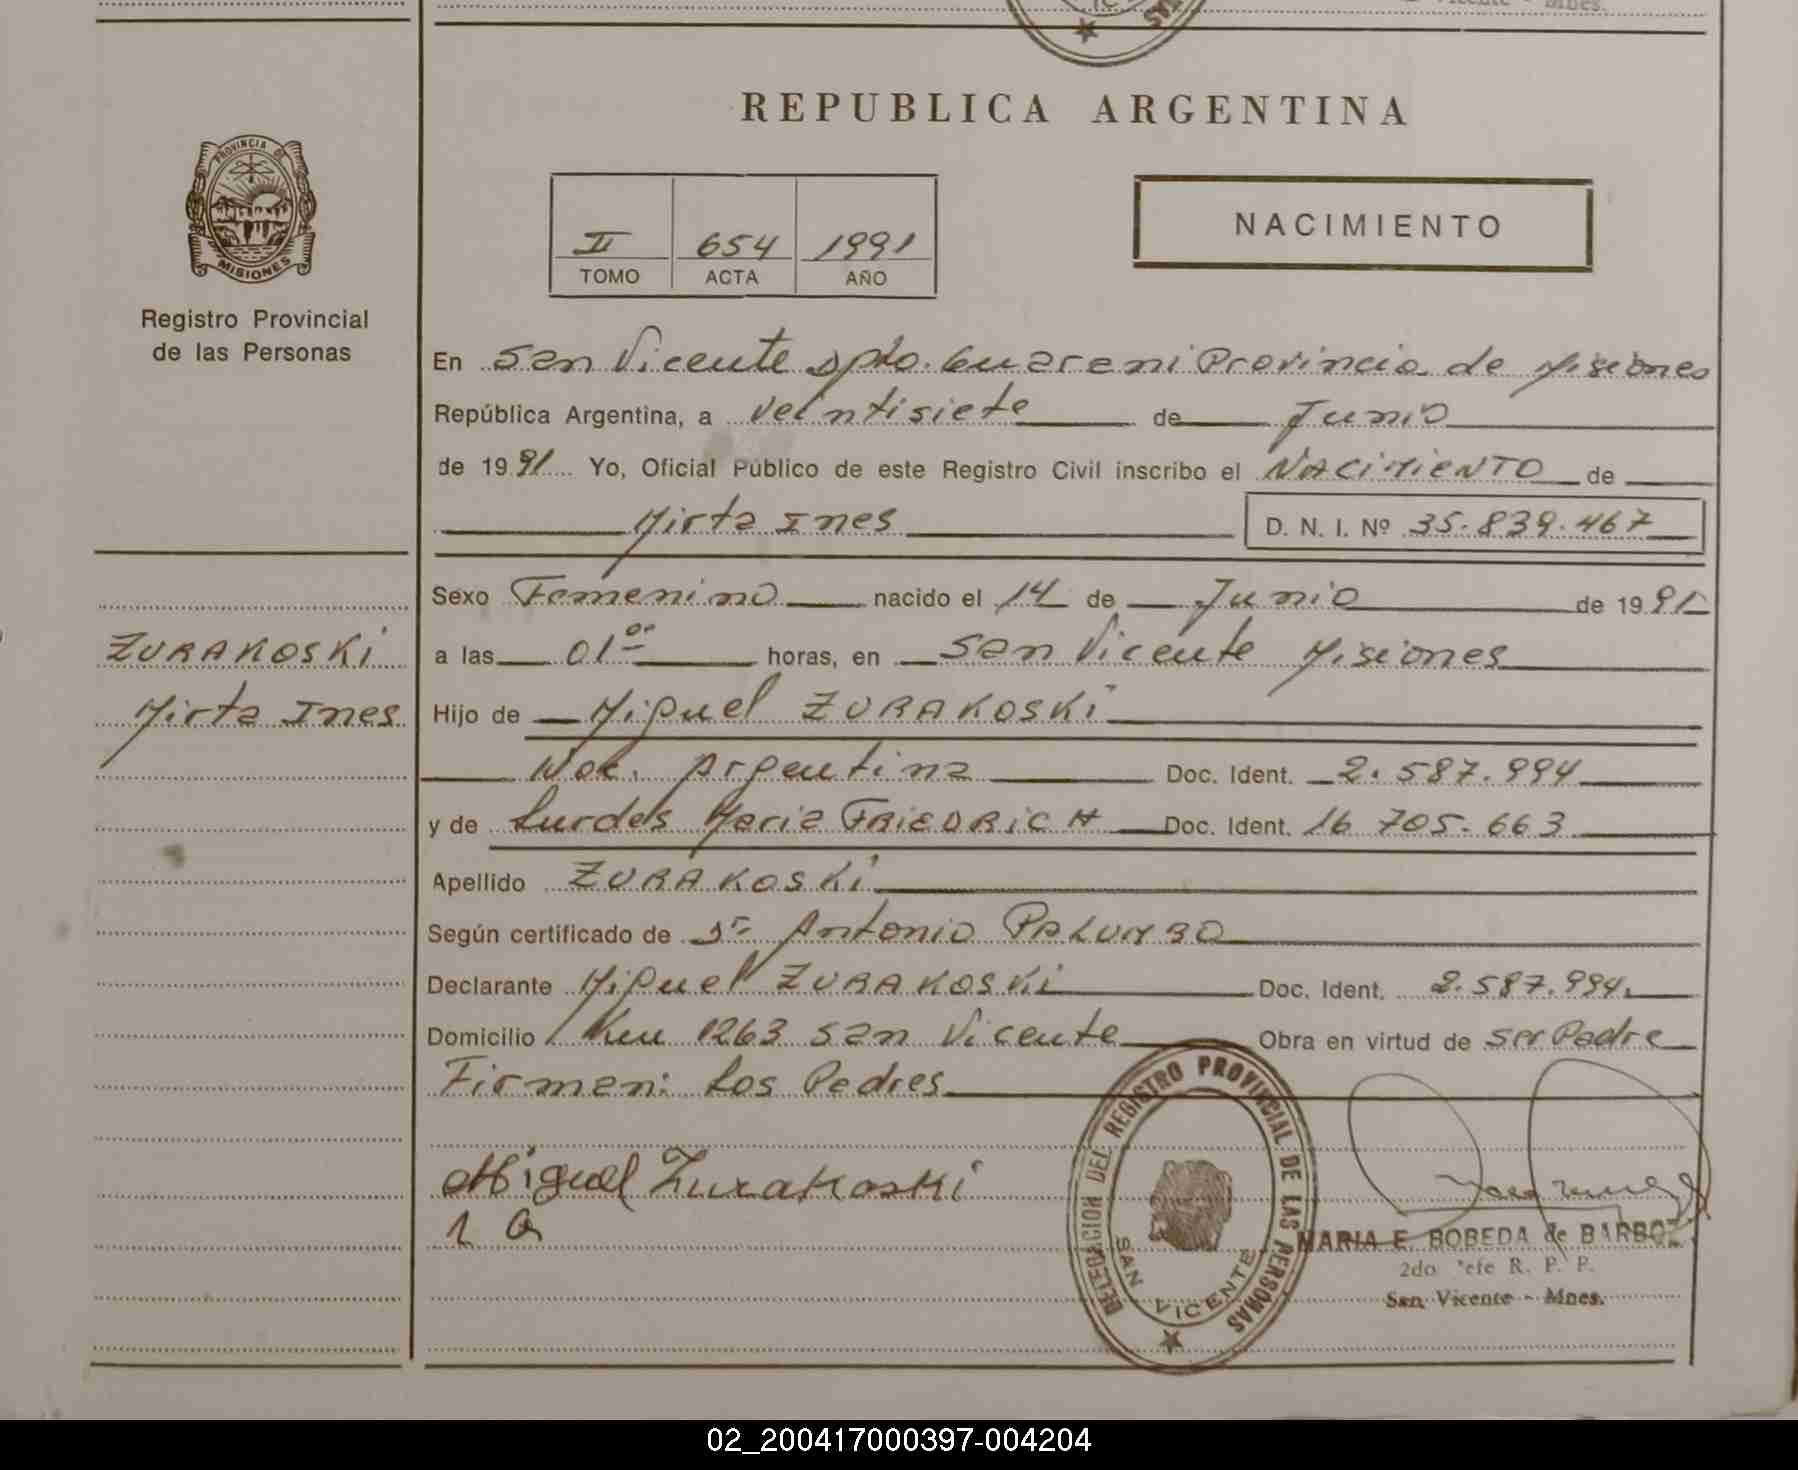 REPUBLICA ARGENTINA
PROVINCIA DE
MISIONES
Registro Provincial
de las Personas
II 654 1991
TOMO ACTA AÑO
NACIMIENTO
En San Vicente Dpto. Guarani Provincia de Misiones
República Argentina, a veintisiete de Junio
de 1991 Yo, Oficial Público de este Registro Civil inscribo el NACIMIENTO de
Mirta Ines D. N. I. Nº 35.839.467
Sexo Femenino nacido el 14 de Junio de 1991
ZURAKOSKI
Mirta Ines
a las 01 00 horas, en San Vicente Misiones
Hijo de Miguel ZURAKOSKI
Nac. Argentina Doc. Ident. 2.587.994
y de Lurdes Maria FRIEDRICH Doc. Ident. 16 705.663
Apellido ZURAKOSKI
Según certificado de Dr Antonio PALUMBO
Declarante Miguel ZURAKOSKI Doc. Ident. 2.587.994.
Domicilio Km 1263 San Vicente Obra en virtud de ser Padre
Firman: Los Padres
Miguel Zurakoski
DELEGACION DEL REGISTRO PROVINCIAL DE LAS PERSONAS
SAN VICENTE
MARIA E. BOBEDA de BARBOZ
2do Jefe R. P. P.
San Vicente - Mnes.
02_200417000397-004204